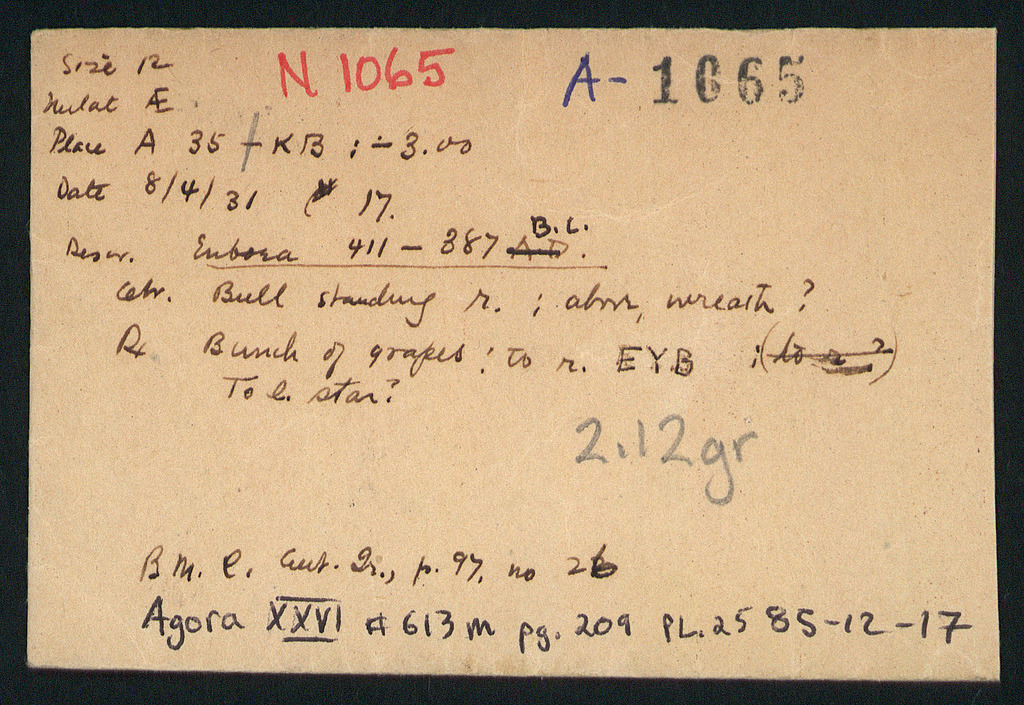 Size 12
N 1065
A- 1065
Metal Æ
Place A 35 - KB ; ÷ 3.00
Date 8/4/31 17.
Descr. Euboea 411 – 387 A.D. B.C.
Obv. Bull standing r. ; above, wreath ?
Rx Bunch of grapes ; to r. EYB ; (to r ?)
To l. star?
2.12gr
B.M.C. Cent. Gr., p. 97, no 26
Agora XXVI # 613m pg. 209 PL.25 85-12-17